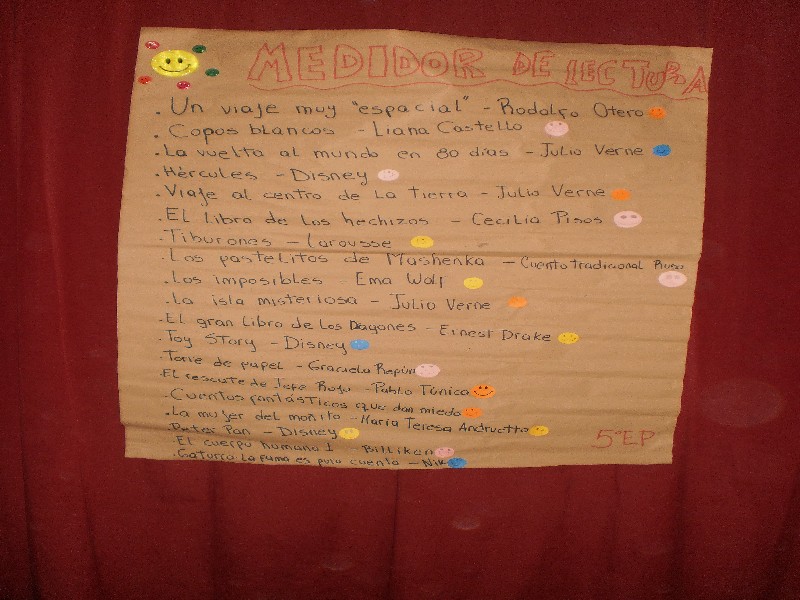 MEDIDOR DE LECTURA
. Un viaje muy "espacial" - Rodolfo Otero
. Copos blancos - Liana Castello
. La vuelta al mundo en 80 días - Julio Verne
. Hércules - Disney
. Viaje al centro de La tierra - Julio Verne
. El Libro de Los hechizos - Cecilia Pisos
. Tiburones - Larousse
. Los pastelitos de Mashenka - Cuento tradicional Ruso
. Los imposibles - Ema Wolf
. La isla misteriosa - Julio Verne
. El gran Libro de Los Dagones - Ernest Drake
. Toy Story - Disney
. Torre de papel - Graciela Repún
. El rescate de Jefe Rojo - Pablo Túnica
. Cuentos fantásticos que dan miedo
. La mujer del moñito - María Teresa Andruetto
. Peter Pan - Disney
. El cuerpo humano 1 - Billiken
. Gaturro La fama es puro cuento - Nik
5° EP